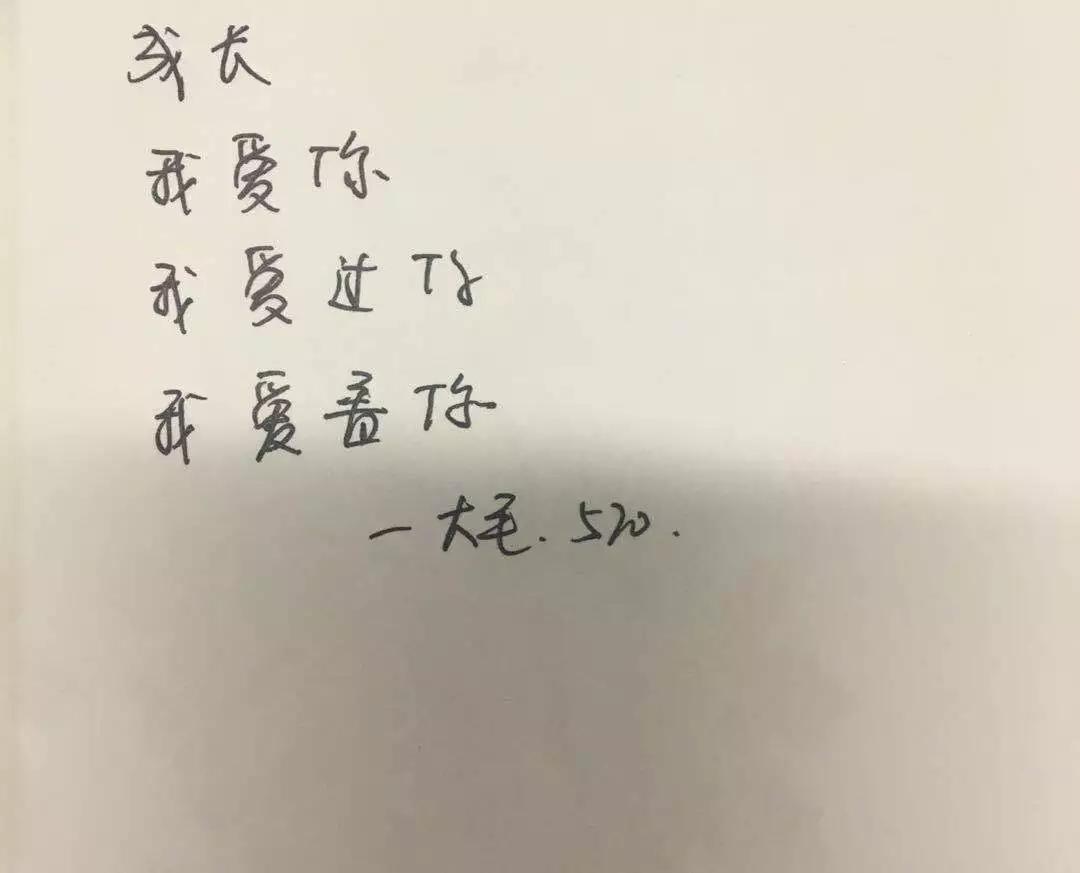 成长
我爱你
我爱过你
我爱着你
一大毛.520.